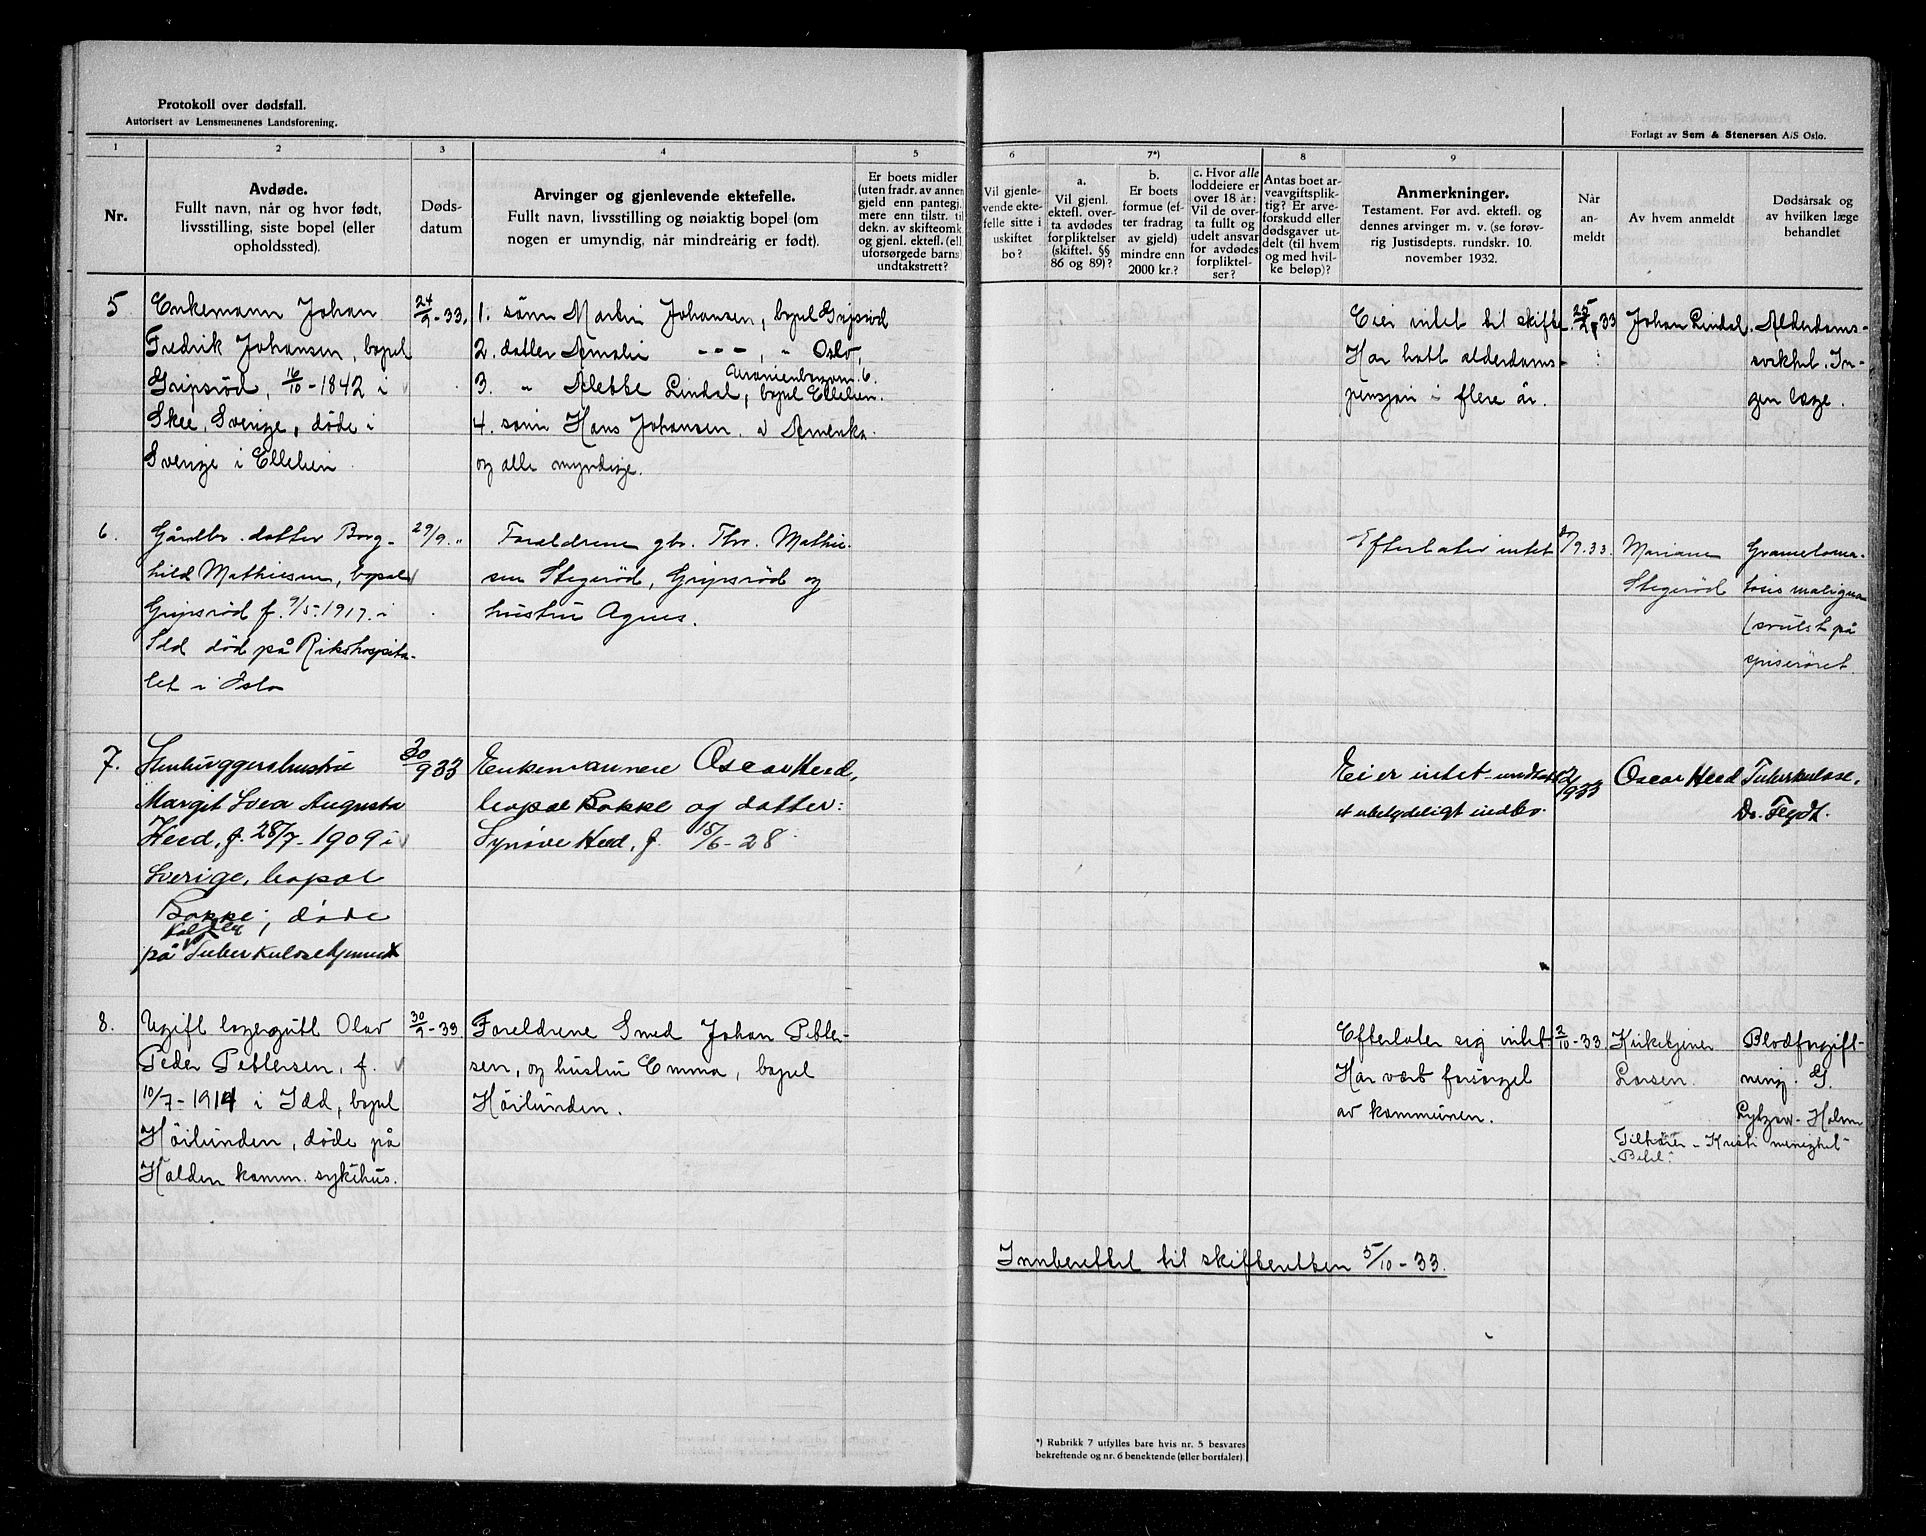 Protokoll over dødsfall.
Autorisert av Lensmennenes Landsforening.
Forlagt av Sem & Stenersen A/S Oslo.
1
2
3
4
5
6
7*)
8
9
Nr.
Avdøde.
Fullt navn, når og hvor født,
livsstilling, siste bopel (eller
opholdssted).
Døds-
datum
Arvinger og gjenlevende ektefelle.
Fullt navn, livsstilling og nøiaktig bopel (om
nogen er umyndig, når mindreårig er født).
Er boets midler
(uten fradr. av annen
gjeld enn pantegj.)
mere enn tilstr. til
dekn. av skifteomk.
og gjenl. ektef. (ell.
uforsørgede barns)
undtakstrett?
Vil gjenle-
vende ekte-
felle sitte i
uskiftet
bo?
a.
Vil gjenl.
ektefl. over-
ta avdødes
forpliktelser
(skiftel. §§
86 og 89)?
b.
Er boets
formue (ef-
ter fradrag
av gjeld)
mindre enn
2000 kr.?
c. Hvor alle
loddeiere er
over 18 år:
Vil de over-
ta fullt og
udelt ansvar
for avdødes
forpliktel-
ser?
Antas boet ar-
veavgiftsplik-
tig? Er arve-
forskudd eller
dødsgaver ut-
delt (til hvem
og med hvil-
ke beløp)?
Anmerkninger.
Testament. Før avd. ektefl. og
dennes arvinger m. v. (se forøv-
rig Justisdepts. rundskr. 10.
november 1932.
Når
an-
meldt
Av hvem anmeldt
Dødsårsak og
av hvilken læge
behandlet
5
Enkemann Johan
Fredrik Johansen, bopel
Gripsrød, 16/10-1842 i
Skee, Sverige, døde i
Sverige i Ellelien
24/9-33.
1. sønn Martin Johansen, bopel Gripsrød
2. datter Amalie - - - , " Oslo,
Uranienborgvn. 6.
3. " Alette Lindal, bopel Ellelien.
4. sønn Hans Johansen. i Amerika.
og alle myndige.
Eier intet til skifte.
Har hatt alderdoms-
pensjon i flere år.
25/9 33
Johan Lindal.
Alderdoms-
svekhet. In-
gen læge.
6.
Gårdbr. datter Borg-
hild Mathiesen, bopel
Gripsrød f. 9/5-1917. i
Idd død på Rikshospita-
let i Oslo
29/9. "
Foreldrene gbr. Thv. Mathie-
sen Stegerød, Gripsrød og
hustru Agnes.
Efterlater intet
/9.33.
Mariane
Stegerød
Gramuloma-
tosis maligna
(svulst på
spiserøret
7.
Stenhuggershustru
Margit Svea Augusta
Heed, f. 28/7-1909 i
Sverige, bopel
Bakke, døde
på Tuberkulosehjemmet
30/9 33
Enkemannen Oscar Heed,
bopel Bakke og datter:
Synøve Heed, f. 15/6-28
Eier intet undtatt
et ubetydeligt indbo.
2/ 933
Oscar Heed
Tuberkulose,
Dr. Feydt.
8.
Ugift lagergutt Olav
Peder Pettersen, f.
10/7-1914 i Idd, bopel
Höilunden, døde på
Halden komm. sykehus.
30/9-33
Foreldrene Smed Johan Petter-
sen, og hustru Emma, bopel
Höilunden.
Efterlater sig intet
Har vært forsørget
av kommunen.
2/10-33.
Kirketjener
Larsen.
Blodforgift-
ning. G.
Lytzow-Holm
Tilhører - Kristi menighet
"Betel"
Innberettet til skifteretten 5/10-33.
*) Rubrikk 7 utfylles bare hvis nr. 5 besvares
bekreftende og nr. 6 benektende (eller bortfaler)